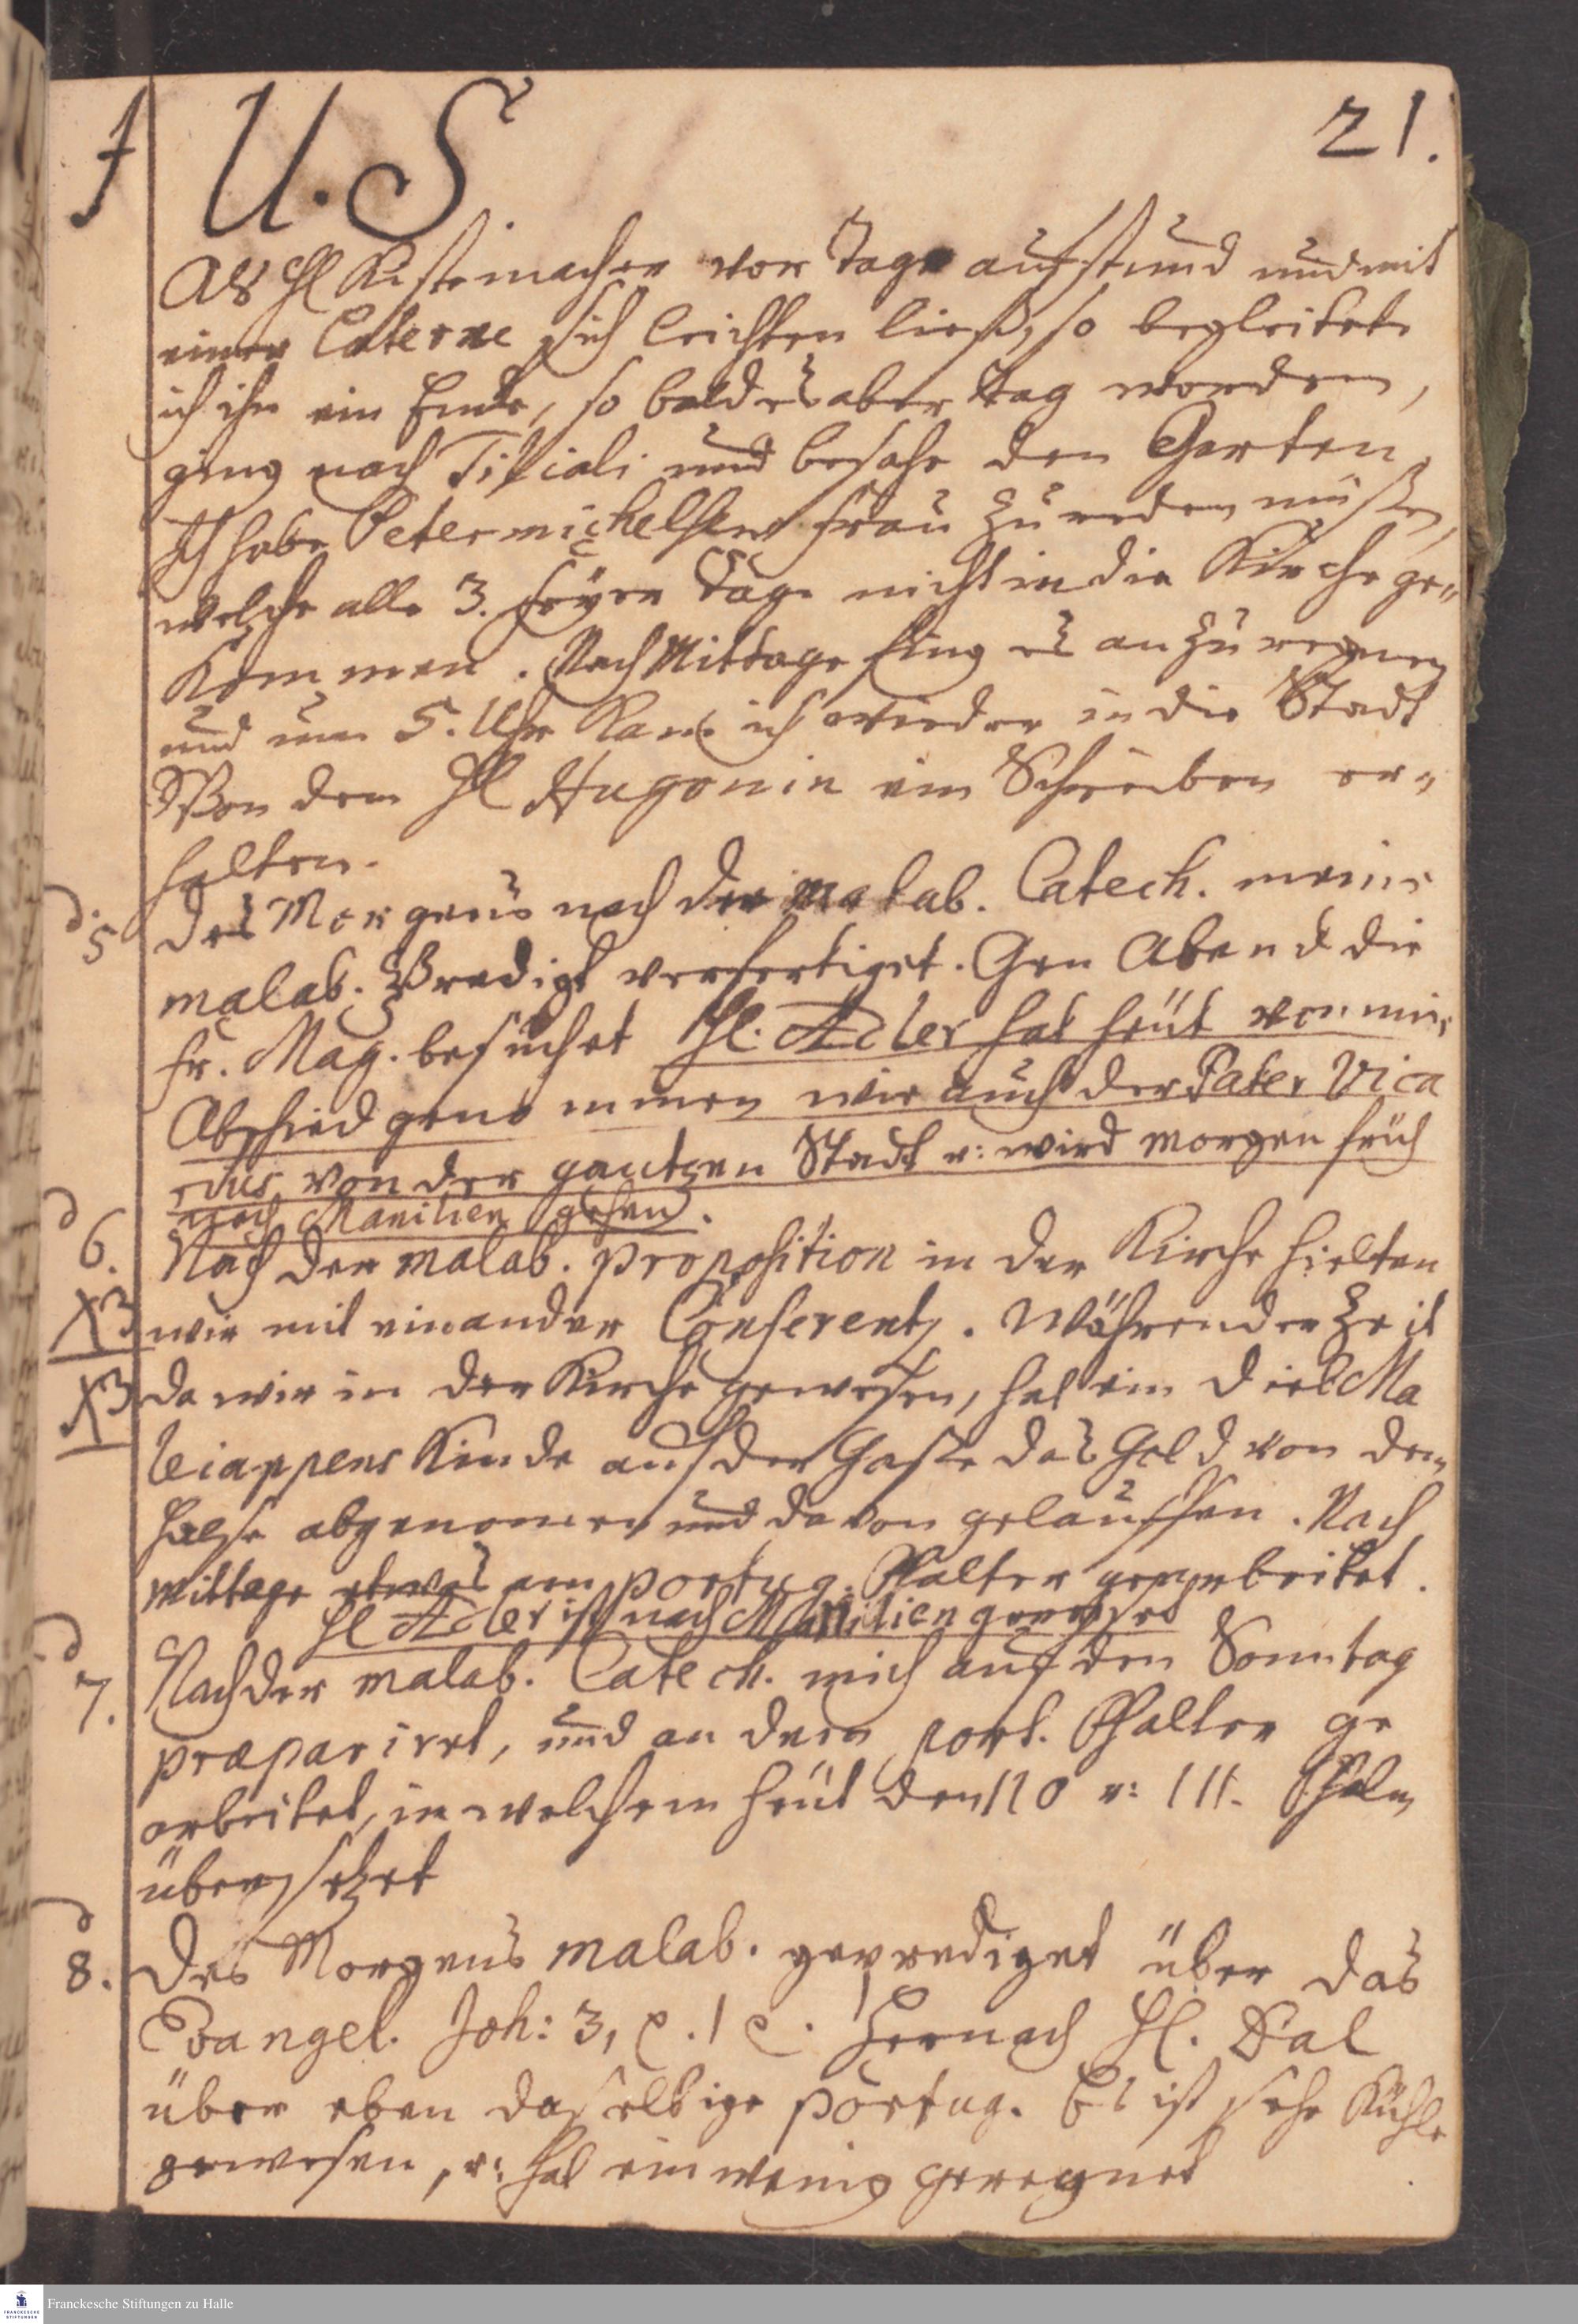 † U. S 21.
Als Hl Kistemacher vor Tage aufstund und mit
einer Laterne sich leichten ließ, so begleitete
ich ihn ein Ende, so bald es aber Tag worden,
ging nach Tiliali und besahe den Garten.
Ich habe Petermichelsen Frau zu reden müßen,
welche alle 3. Feyer Tage nicht in die Kirche ge„
kommen. Nach Mittage fing es an zu regnen
und um 5. Uhr kam ich wieder in die Stadt
Von dem Hl Hugonin ein Schreiben er„
halten.
d. 5 Des Morgens nach der malab. Catech. meine
malab. Predigt verfertiget. Gen Abend die
Fr. Mag. besuchet Hl. Adler hat heüt von mir
Abschied genommen wie auch der Pater Vica
rius von der gantzen Stadt u: wird morgen früh
nach Manilien gehen.
d 6. Nach der malab. proposition in der Kirche hielten
X3 wir mit einander Conferentz. Während der Zeit
X3 da wir in der Kirche gewesen, hat ein Dieb Ma
leiappens Kinde auf der Gaße das Gold von dem
Halse abgenomen und davon gelauffen. Nach
mittage etwas am portug. Psalter gearbeitet.
Hl Adler ist nach Manilien gereyset
d 7. Nach der malab. Catech. mich auf den Sonntag
præpariret, und an dem port. Psalter ge
arbeitet, in welchem heüt den 110 u: 111. Psalm
übersetzet
d 8. Des Morgens malab. geprediget über das
Evangel. Joh: 3, Hernach Hl. Dal
über eben daselbige portug. Es ist sehr kühle
gewesen, u: hat ein wenig geregnet
Franckesche Stiftungen zu Halle